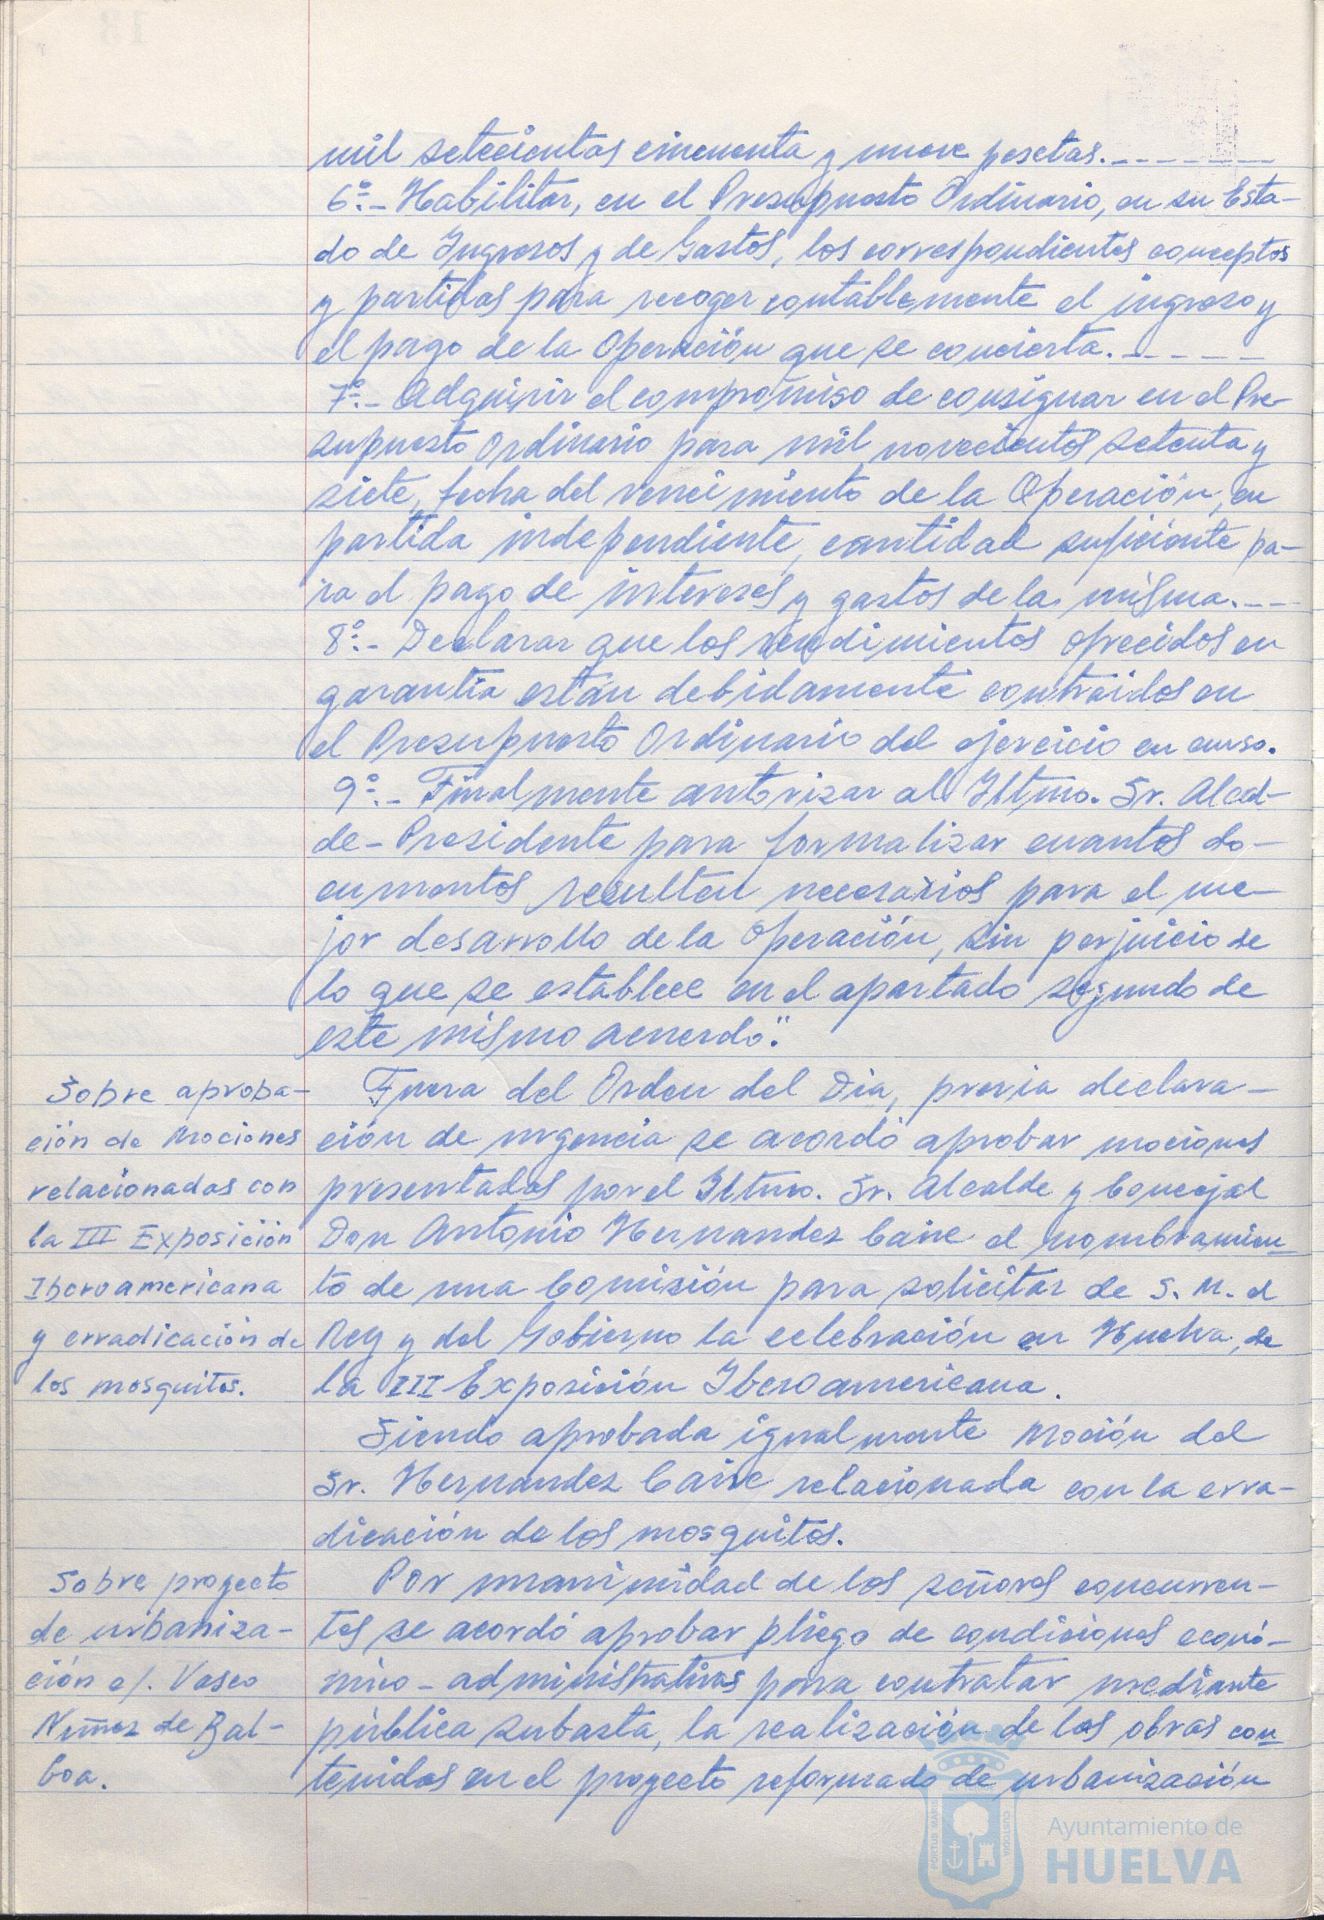 mil setecientas cincuenta y nueve pesetas.
6º.- Habilitar, en el Presupuesto Ordinario, en su Esta-
do de Ingresos y de Gastos, los correspondientes conceptos
y partidas para recoger contablemente el ingreso y
el pago de la Operación que se concierta.
7º.- Adquirir el compromiso de consignar en el Pre-
supuesto Ordinario para mil novecientos setenta y
siete, fecha del vencimiento de la Operación, en
partida independiente, cantidad suficiente pa-
ra el pago de intereses y gastos de la misma.
8º.- Declarar que los rendimientos ofrecidos en
garantía están debidamente contraidos en
el Presupuesto Ordinario del ejercicio en curso.
9º.- Finalmente autorizar al Iltmo. Sr. Alcal-
de-Presidente para formalizar cuantos do-
cumentos resulten necesarios para el me-
jor desarrollo de la Operación, sin perjuicio de
lo que se establece en el apartado segundo de
este mismo acuerdo".
Sobre aproba-
ción de Mociones
relacionadas con
la III Exposición
Iberoamericana
y erradicación de
los mosquitos.
Fuera del Orden del Dia, previa declara-
ción de urgencia se acordó aprobar mociones
presentadas por el Iltmo. Sr. Alcalde y Concejal
Don Antonio Hernandez Caire el nombramien-
to de una Comisión para solicitar de S. M. el
Rey y del Gobierno la celebración en Huelva, de
la III Exposición Iberoamericana.
Siendo aprobada igualmente Moción del
Sr. Hernandez Caire relacionada con la erra-
dicación de los mosquitos.
Sobre proyecto
de urbaniza-
ción c/. Vasco
Nuñez de Bal-
boa.
Por unanimidad de los señores concurren-
tes se acordó aprobar pliego de condiciones econó-
mico-administrativas para contratar mediante
pública subasta, la realización de las obras con-
tenidas en el proyecto reformado de urbanización
PORTUS MARIS
CUSTODIA
Ayuntamiento de
HUELVA